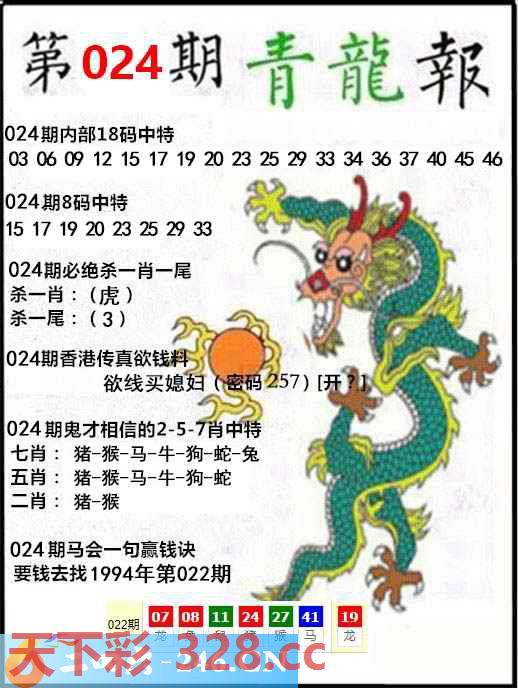 第024期青龍報
024期内部18码中特
03 06 09 12 15 17 19 20 23 25 29 33 34 36 37 40 45 46
024期8码中特
15 17 19 20 23 25 29 33
024期必绝杀一肖一尾
杀一肖：（虎）
杀一尾：（3）
024期香港传真欲钱料
欲线买媳妇（密码257）[开？]
024期鬼才相信的2-5-7肖中特
七肖： 猪-猴-马-牛-狗-蛇-兔
五肖： 猪-猴-马-牛-狗-蛇
二肖： 猪-猴
024期马会一句赢钱诀
要钱去找1994年第022期
022期 07 08 11 24 27 41 19
龙 兔 鼠 猪 猴 马 龙
天下彩-328.cc